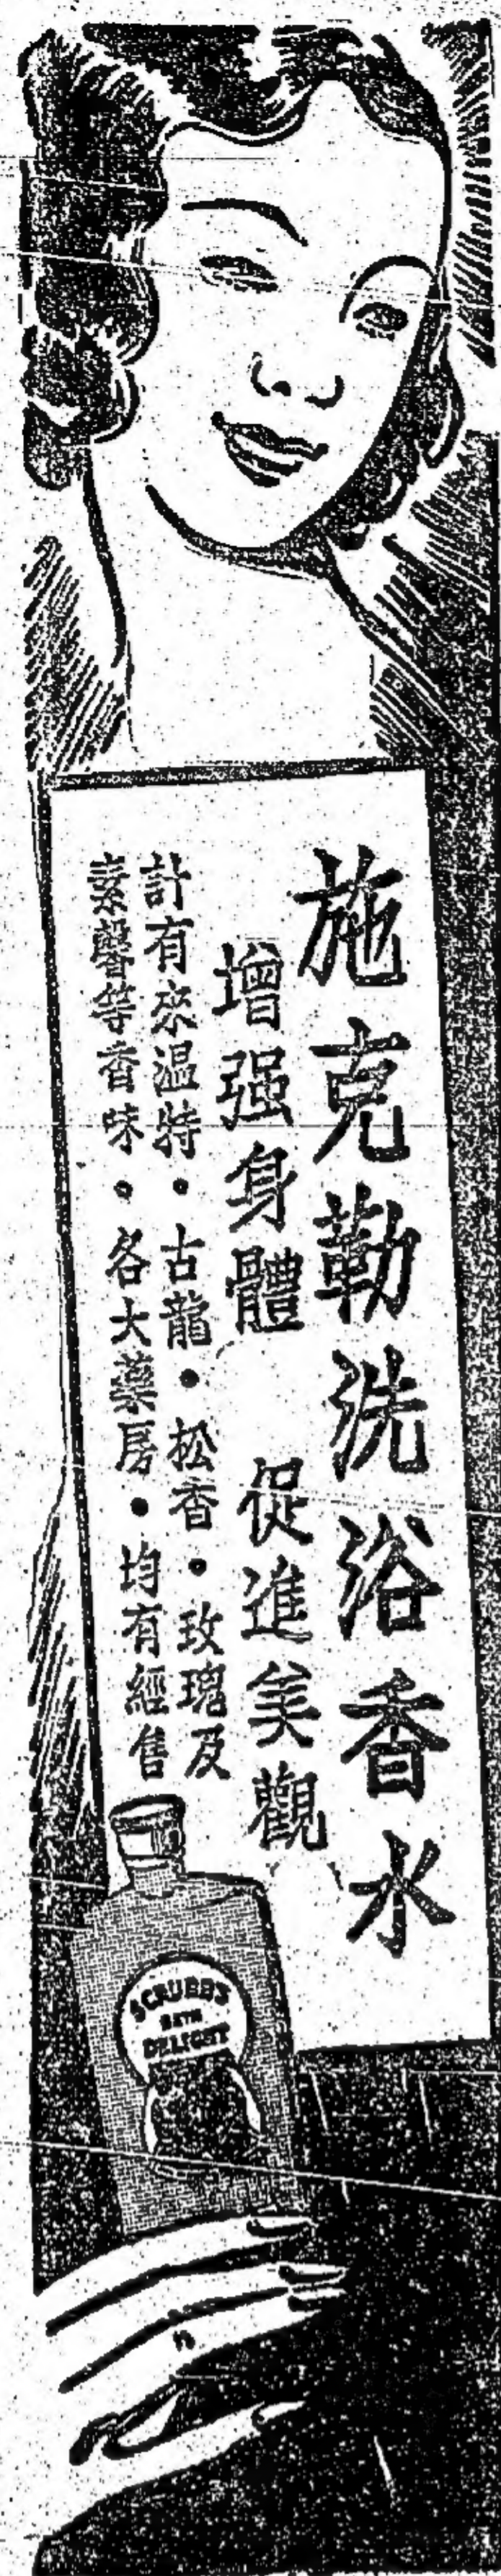 施克勒洗浴香水
增强身體　促進美觀
計有來温特・古龍・松香・玫瑰及
素馨等香味・各大藥房・均有經售
SCRUBB'S
BATH
DELIGHT